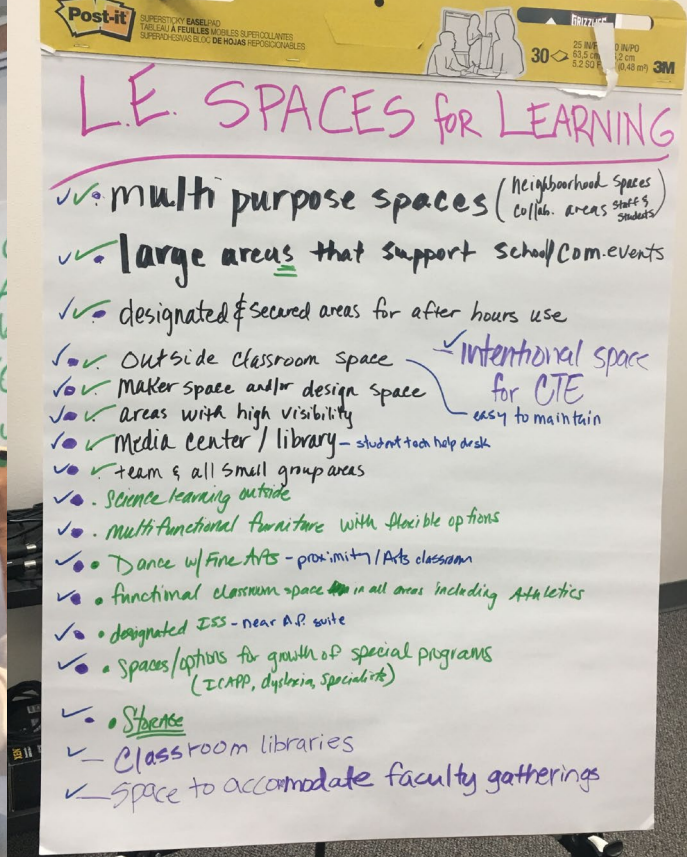 Post-it
SUPERSTICKY EASELPAD
TABLEAU À FEUILLES MOBILES SUPER COLLANTES
SUPERADHESIVAS BLOC DE HOJAS REPOSICIONABLES
30
25 IN/P
63,5 cm
5.2 SQ F
(0,48 m²)
3M
L.E. SPACES for LEARNING
multi purpose spaces (neighbourhood spaces
collab. areas staff & students)
large areas that support school/com.events
designated & secured areas for after hours use
outside classroom space
easy to maintain
intentional space
for CTE
maker space and/or design space
areas with high visibility
Media center / library – student tech help desk
team & all small group areas
science learning outside
multifunctional furniture with flexible options
Dance w/ Fine Arts – proximity / Arts classroom
functional classroom space in all areas including Athletics
designated ISS – near A.P. suite
spaces/options for growth of special programs
(ICAPP, dyslexia, specialists)
STORAGE
Classroom libraries
Space to accommodate faculty gatherings